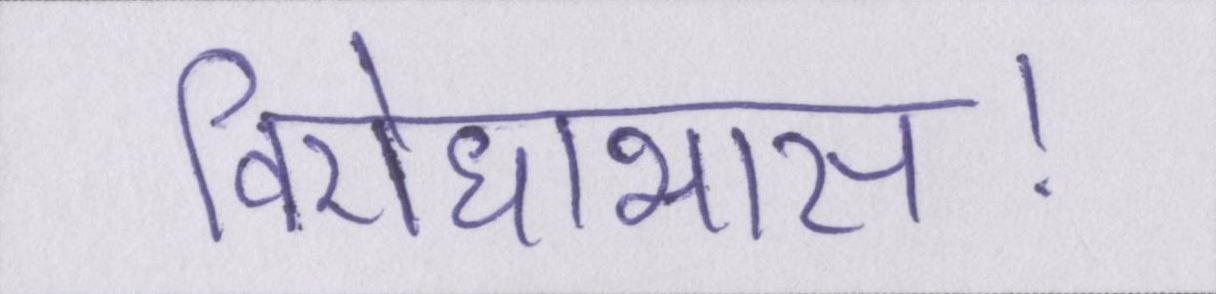 विरोधाभास!